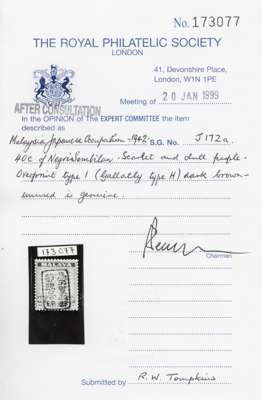 No. 173077
THE ROYAL PHILATELIC SOCIETY
LONDON
41, Devonshire Place,
London, W1N 1PE
AFTER CONSULTATION
Meeting of 20 JAN 1999
In the OPINION of The EXPERT COMMITTEE the item
described as
Malaysia Japanese Occupation - 1942. S.G. No. J172a.
40c of Negri Sembilan - Scarlet and dull purple -
Overprint type 1 (Gallatly type H) dark brown -
unused is genuine.
Chairman
173,077
MALAYA
Submitted by R.W. Tompkins